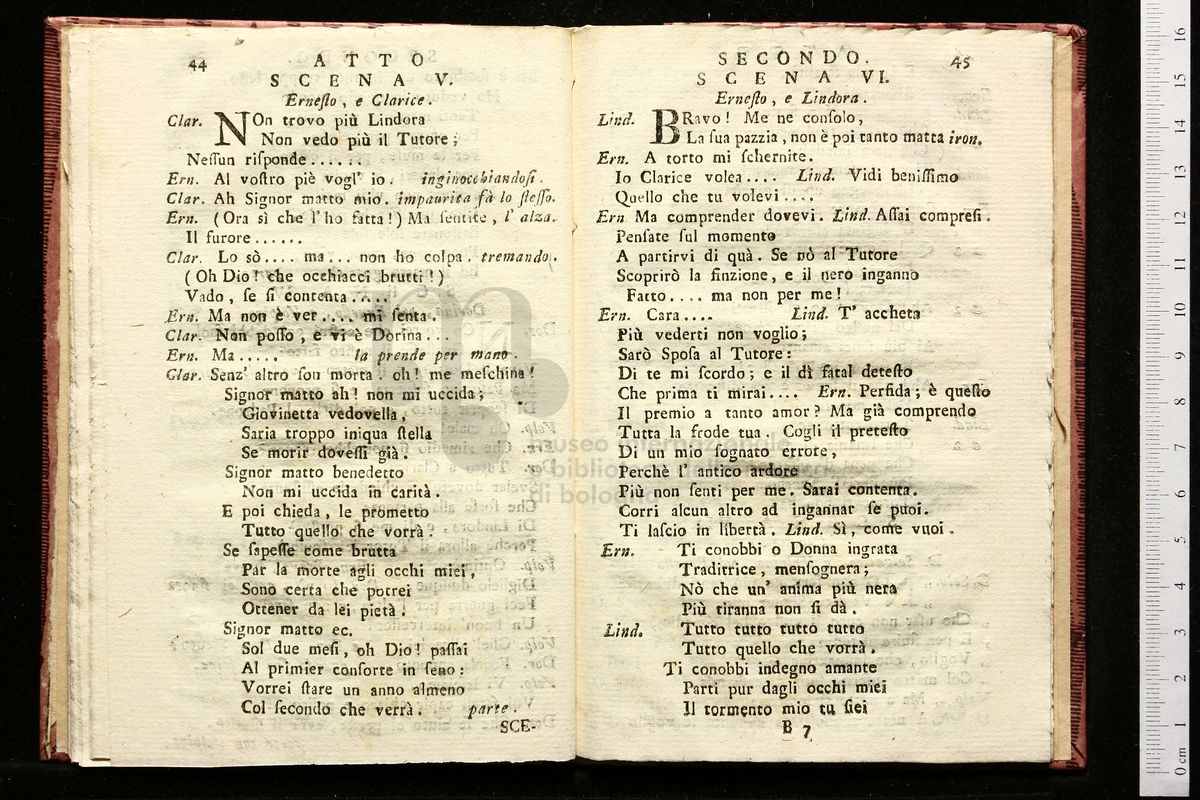 44
ATTO
SCENA V.
Ernesto, e Clarice.
Clar. NOn trovo più Lindora
Non vedo più il Tutore;
Neſſun riſponde.......
Ern. Al voſtro piè vogl' io. inginocchiandoſi.
Clar. Ah Signor matto mio. impaurita fà lo ſteſſo.
Ern. (Ora sì che l'ho fatta!) Ma ſentite, l' alza.
Il furore......
Clar. Lo sò.... ma... non ho colpa. tremando.
(Oh Dio! che occhiacci brutti!)
Vado, ſe ſi contenta.....
Ern. Ma non è ver.... mi ſenta.
Clar. Non poſſo, e vi è Dorina...
Ern. Ma..... la prende per mano.
Clar. Senz' altro ſon morta! oh! me meſchina!
Signor matto ah! non mi uccida;
Giovinetta vedovella,
Saria troppo iniqua ſtella
Se morir doveſſi già.
Signor matto benedetto
Non mi uccida in carità.
E poi chieda, le prometto
Tutto quello che vorrà.
Se ſapeſſe come brutta
Par la morte agli occhi miei,
Sono certa che potrei
Ottener da lei pietà.
Signor matto ec.
Sol due meſi, oh Dio! paſſai
Al primier conſorte in ſeno:
Vorrei ſtare un anno almeno
Col ſecondo che verrà. parte.
SCE-
SECONDO.
45
SCENA VI.
Erneſto, e Lindora.
Lind. BRavo! Me ne conſolo,
La ſua pazzia, non è poi tanto matta iron.
Ern. A torto mi ſchernite.
Io Clarice volea.... Lind. Vidi beniſſimo
Quello che tu volevi....
Ern Ma comprender dovevi. Lind. Aſſai compreſi.
Penſate ſul momento
A partirvi di quà. Se nò al Tutore
Scoprirò la finzione, e il nero inganno
Fatto.... ma non per me!
Ern. Cara.... Lind. T' accheta
Più vederti non voglio;
Sarò Spoſa al Tutore:
Di te mi ſcordo; e il dì fatal deteſto
Che prima ti mirai.... Ern. Perfida; è queſto
Il premio a tanto amor? Ma già comprendo
Tutta la frode tua. Cogli il preteſto
Di un mio ſognato errore,
Perchè l' antico ardore
Più non ſenti per me. Sarai contenta.
Corri alcun altro ad ingannar ſe puoi.
Ti laſcio in libertà. Lind. Sì, come vuoi.
Ern. Ti conobbi o Donna ingrata
Traditrice, menſognera;
Nò che un' anima più nera
Più tiranna non ſi dà.
Lind. Tutto tutto tutto tutto
Tutto quello che vorrà.
Ti conobbi indegno amante
Parti pur dagli occhi miei
Il tormento mio tu ſiei
B 7
museo internazionale
e biblioteca
di bologna
0 cm 1 2 3 4 5 6 7 8 9 10 11 12 13 14 15 16